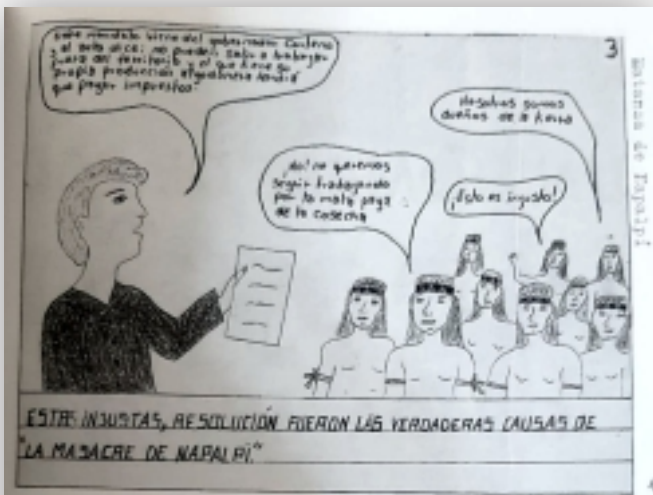 Este mandato viene del gobernador Centeno
y el solo dice: no pueden salir a trabajar
fuera del territorio y el que tiene su
propia producción algodonera tendrá
que pagar impuestos.
3
Nosotros somos
dueños de la tierra
¡No! no queremos
seguir trabajando
por la mala paga
de la cosecha
¡Esto es injusto!
Matanza de Napalpí
ESTAS INJUSTAS, RESOLUCIÓN FUERON LAS VERDADERAS CAUSAS DE
"LA MASACRE DE NAPALPÍ."